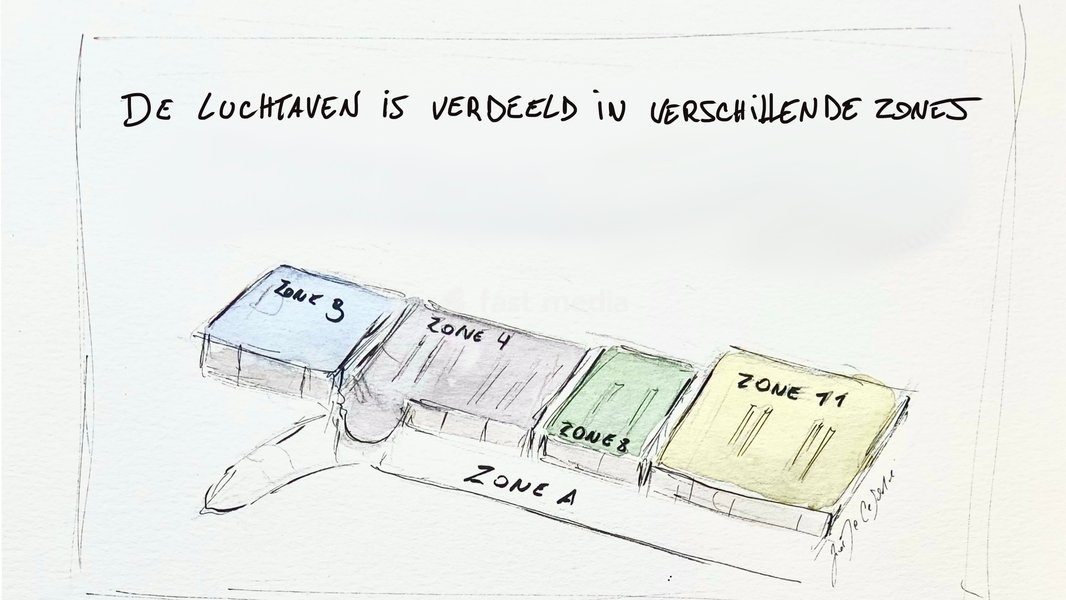 DE LUCHTAVEN iS VERDEELD iN VERSCHiLLENDE ZONES
fast media
ZONE 3
ZONE 4
ZONE 8
ZONE 11
ZONE A